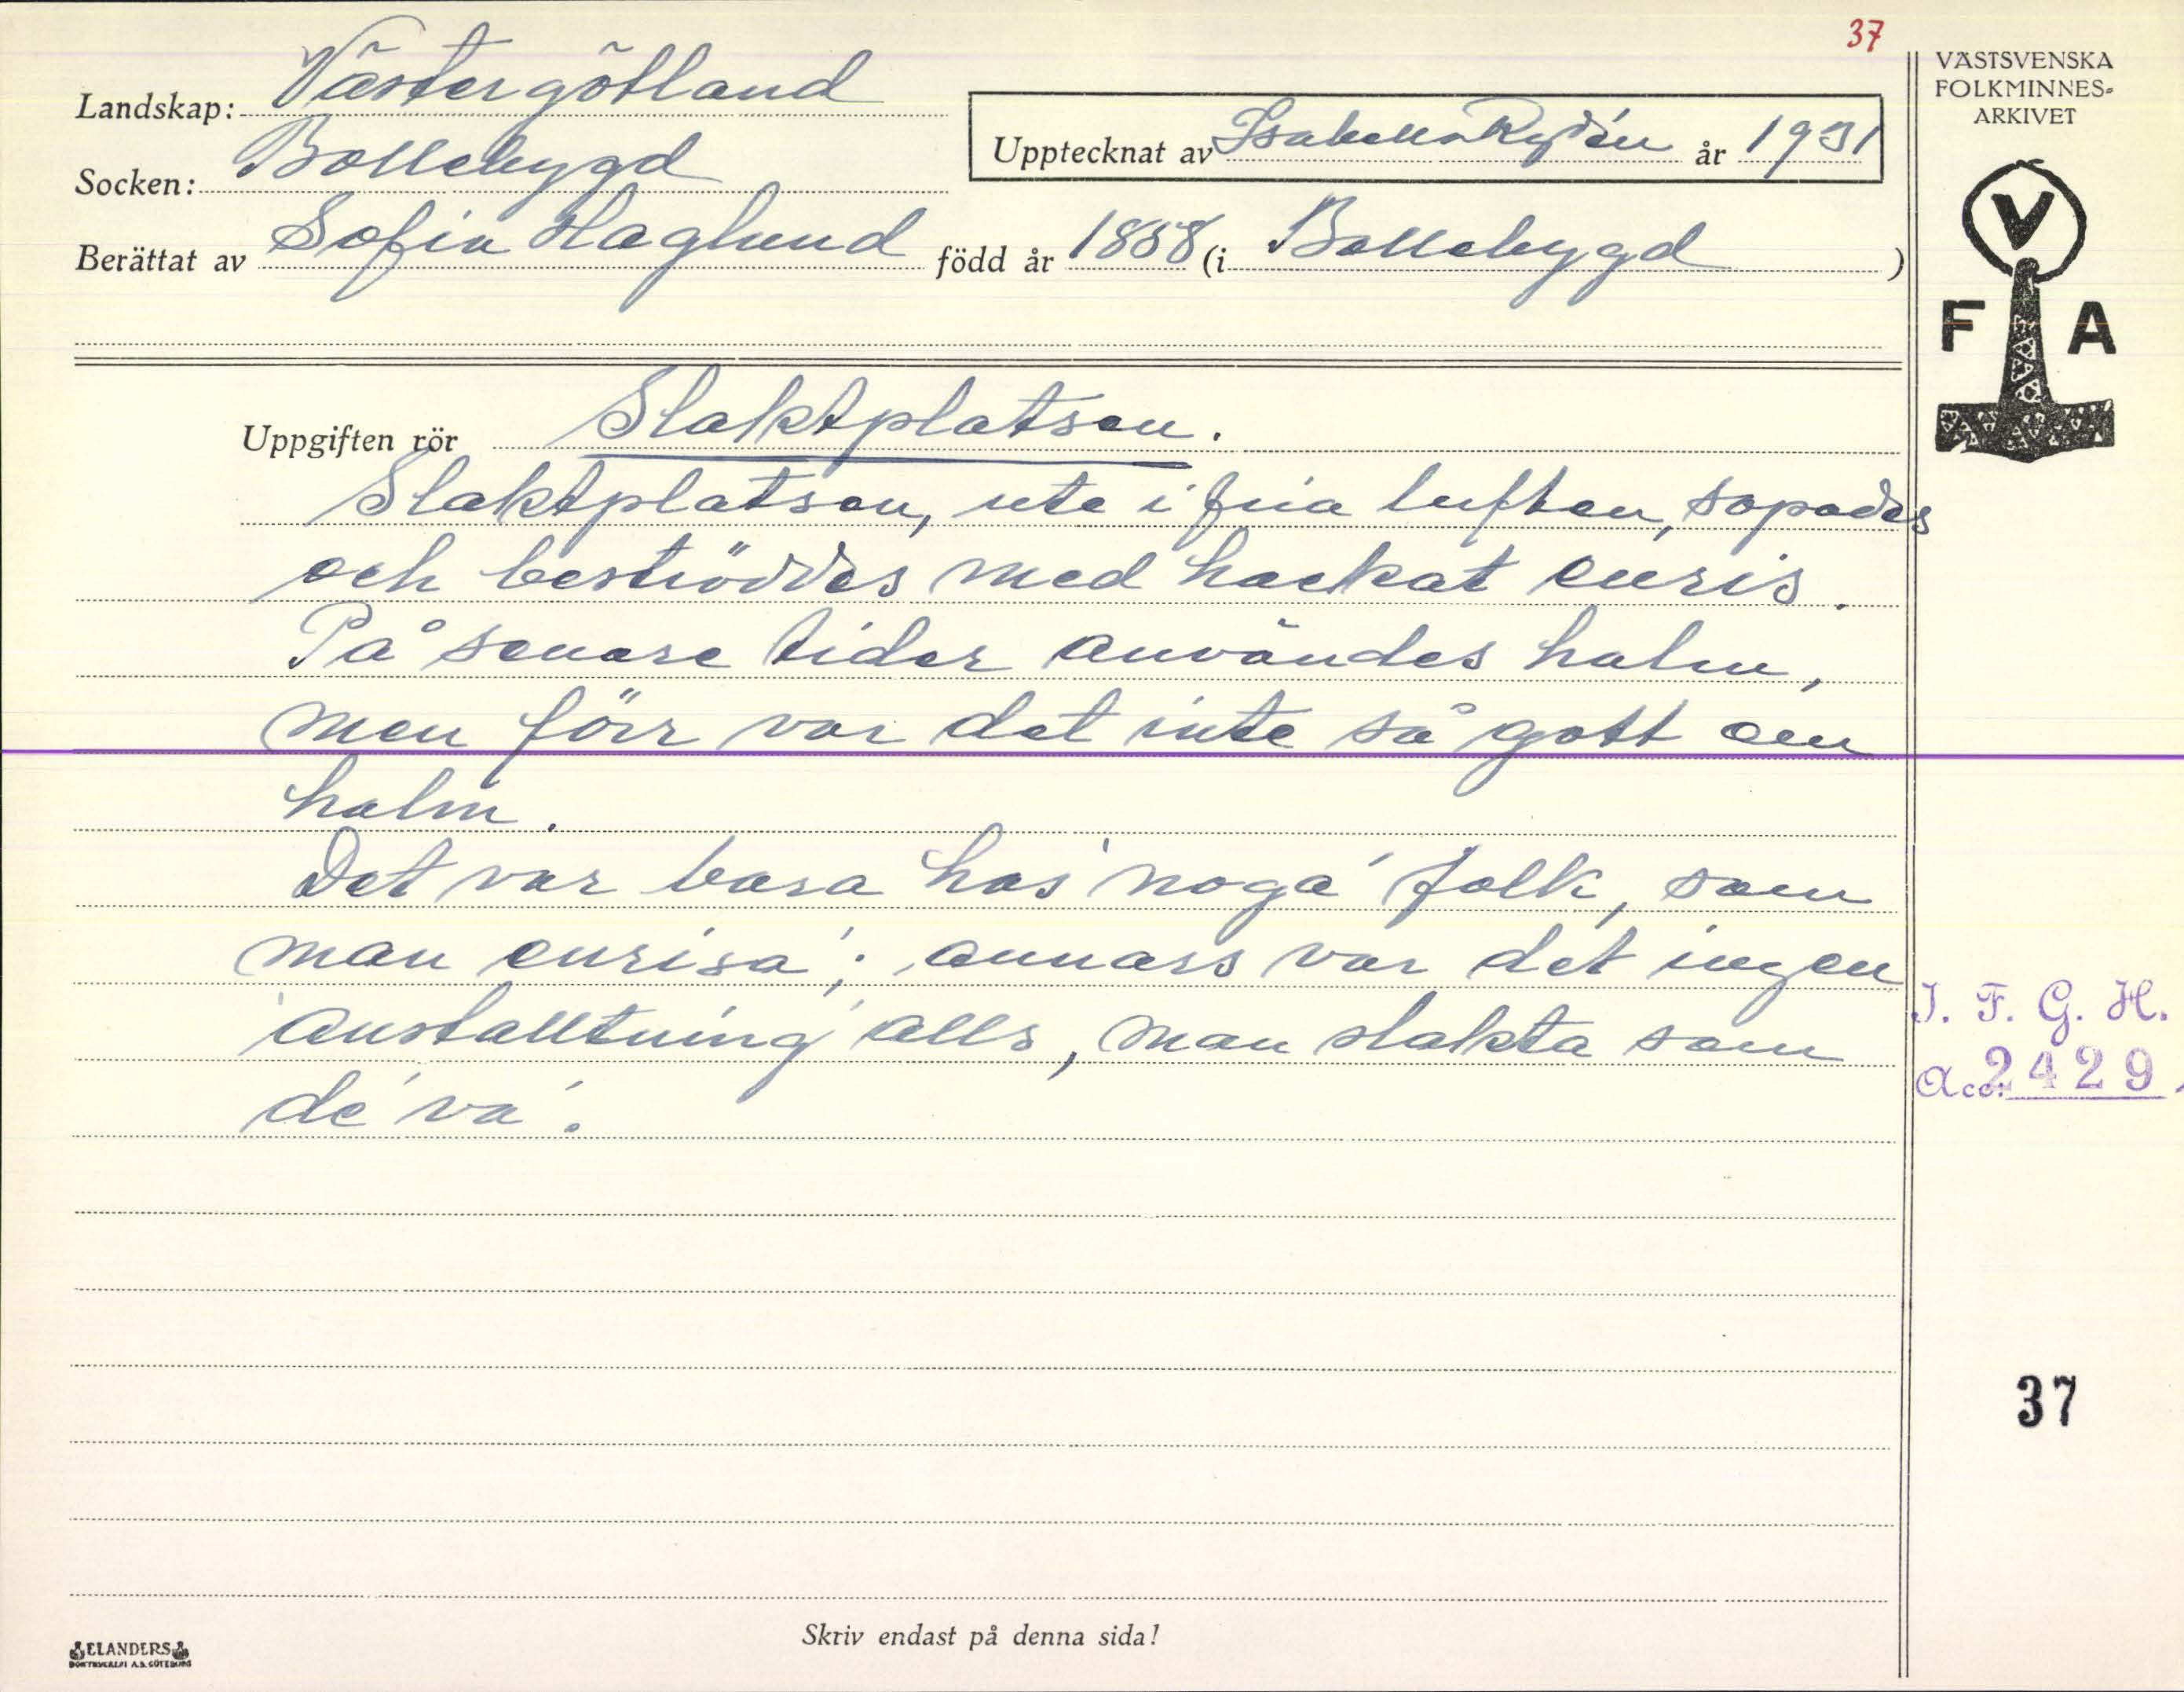 37
Landskap: Västergötland
Socken: Bollebygd
Upptecknat av Isabella Rydén år 1931
Berättat av Sofia Haglund född år 1858 (i Bollebygd )
VÄSTSVENSKA
FOLKMINNES-
ARKIVET
V
F A
Uppgiften rör Slaktplatsen.
Slaktplatsen, ute i fria luften, sopades
och beströddes med hackat enris.
På senare tider användes halm,
men förr var det inte så gott om
halm.
Det var bara hos noga folk, som
man enrisa'; annars var det ingen
anstalltning alls, man slakta som
de' va'.
I. F. G. H.
Acc. 2429
37
Skriv endast på denna sida!
ELANDERS
BOKTRYCKERI A.B. GÖTEBORG